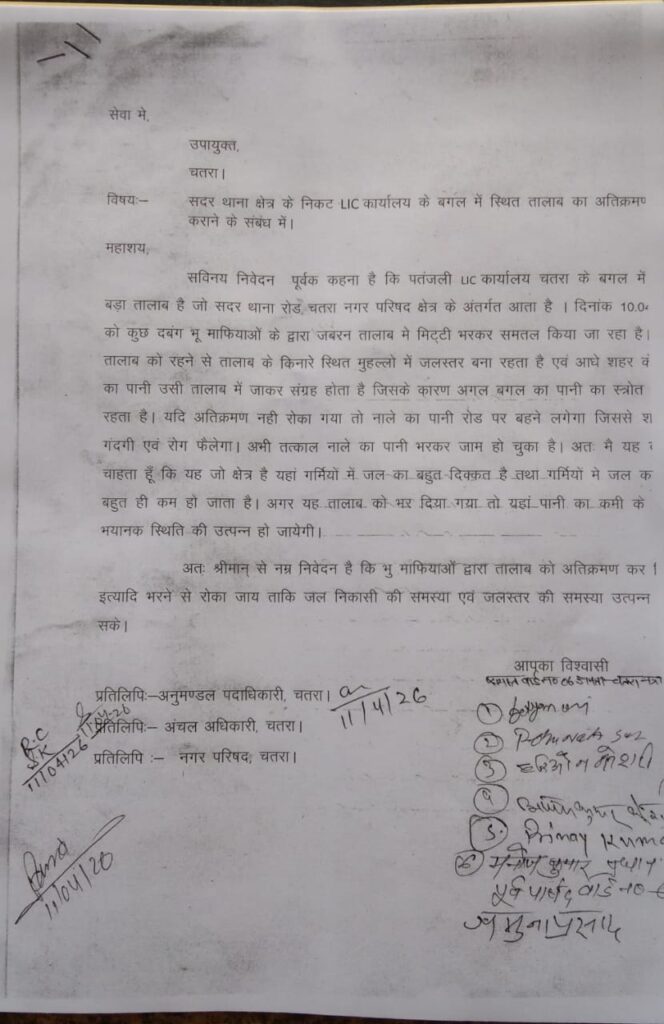 सेवा मे,
उपायुक्त,
चतरा।
विषयः– सदर थाना क्षेत्र के निकट LIC कार्यालय के बगल में स्थित तालाब का अतिक्रमण
कराने के संबंध में।
महाशय,
सविनय निवेदन पूर्वक कहना है कि पतंजली LIC कार्यालय चतरा के बगल में
बड़ा तालाब है जो सदर थाना रोड़ चतरा नगर परिषद क्षेत्र के अंतर्गत आता है । दिनांक 10.0
को कुछ दबंग भू माफियाओं के द्वारा जबरन तालाब मे मिट्टी भरकर समतल किया जा रहा है।
तालाब को रहने से तालाब के किनारे स्थित मुहल्लो में जलस्तर बना रहता है एवं आधे शहर
का पानी उसी तालाब में जाकर संग्रह होता है जिसके कारण अगल बगल का पानी का स्त्रोत
रहता है। यदि अतिक्रमण नही रोका गया तो नाले का पानी रोड पर बहने लगेगा जिससे
गंदगी एवं रोग फैलेगा। अभी तत्काल नाले का पानी भरकर जाम हो चुका है। अतः मै यह
चाहता हूँ कि यह जो क्षेत्र है यहां गर्मियों में जल का बहुत दिक्कत है तथा गर्मियों मे जल
बहुत ही कम हो जाता है। अगर यह तालाब को भर दिया गया तो यहां पानी का कमी के
भयानक स्थिति की उत्पन्न हो जायेगी।
अतः श्रीमान् से नम्र निवेदन है कि भु माफियाओं द्वारा तालाब को अतिक्रमण कर
इत्यादि भरने से रोका जाय ताकि जल निकासी की समस्या एवं जलस्तर की समस्या उत्पन्न
सके।
आपका विश्वासी
प्रतिलिपिः–अनुमण्डल पदाधिकारी, चतरा।
11/4/26
प्रतिलिपिः– अंचल अधिकारी, चतरा।
प्रतिलिपि :– नगर परिषद, चतरा।
R.C
SK
11/04/26
11/04/26
①
②
③
④
⑤ Primay
⑥ मनोज कुमार
पूर्व पार्षद वार्ड नं०
जमुना प्रसाद